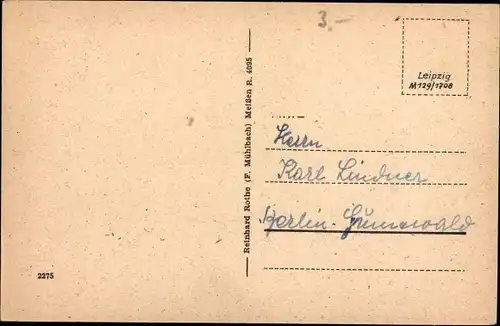 3.-
Leipzig
M 129/1708
Reinhard Rothe (F. Mühlbach) Meißen R. 4095
Herrn
Karl Lindner
Berlin-Grunewald
2275